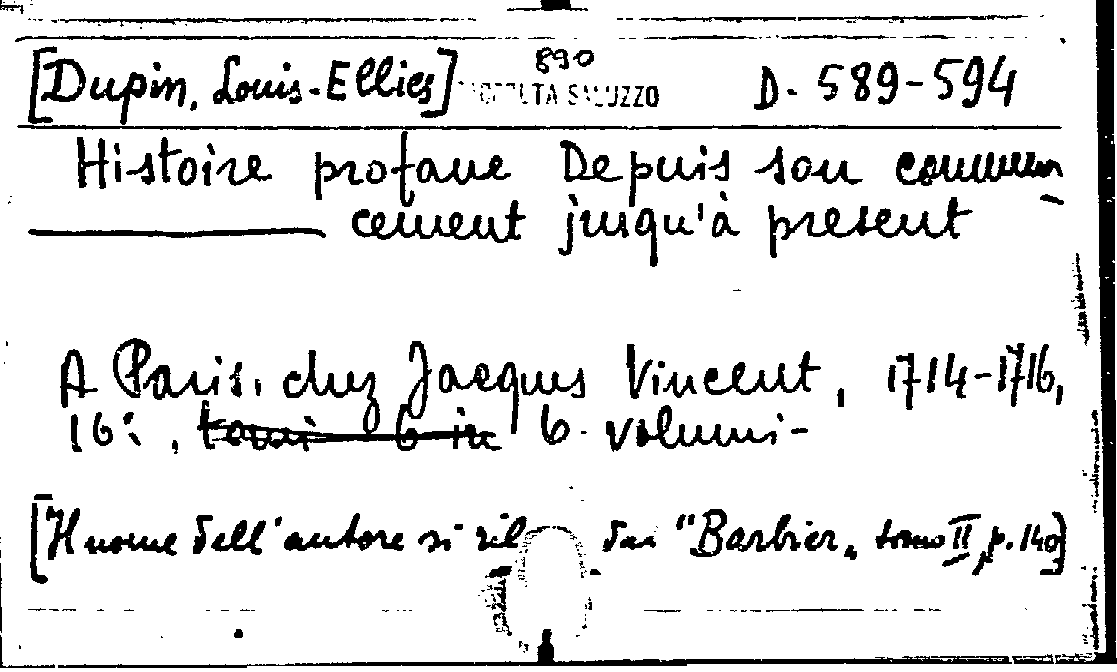 [Dupin, Louis-Ellies] 890 RACCOLTA SALUZZO D. 589-594
Histoire profane Depuis son commen
cement jusqu'à present
A Paris, chez Jacques Vincent, 1714-1716,
16°, tomi 6 in 6. volumi-
[Il nome dell'autore si ril dai "Barbier„ tomo II, p. 140]